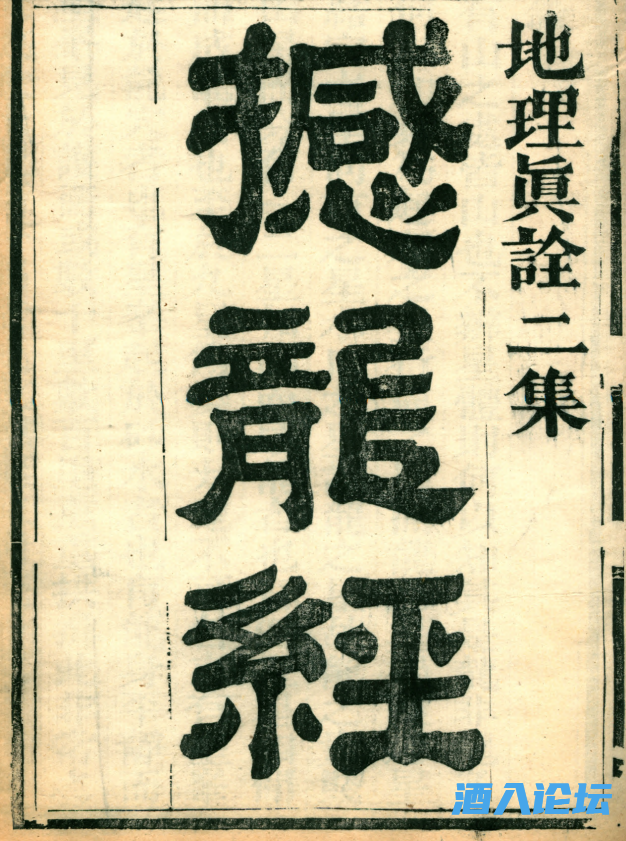 地理眞詮二集
撼龍經
酒入论坛